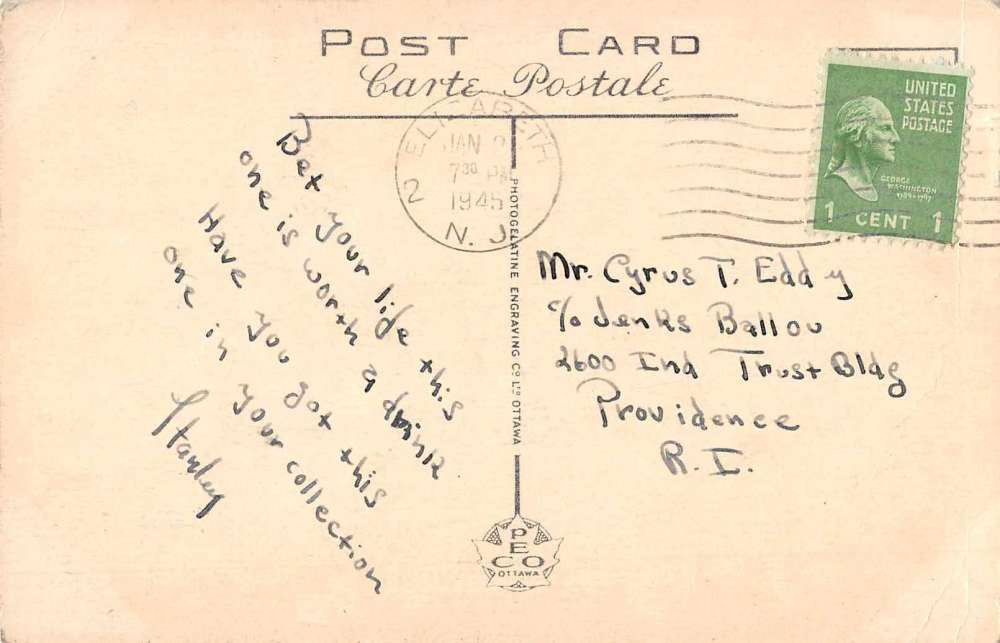 POST CARD
Carte Postale
ELIZABETH
JAN
7 30 PM
1945
2
N. J.
UNITED
STATES
POSTAGE
GEORGE
WASHINGTON
1789-1797
1 CENT 1
Bet your life this
one is worth a drink
Have you got this
one in your collection
Stanley
Mr. Cyrus T. Eddy
c/o Jenks Ballou
2600 Ind Trust Bldg
Providence
R. I.
PHOTOGELATINE ENGRAVING CO LTD OTTAWA
PECO
OTTAWA